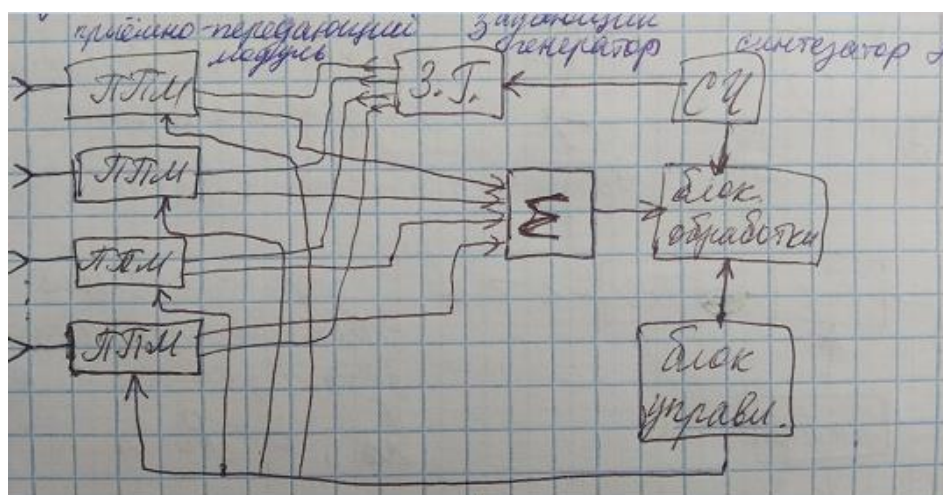 приёмно-передающий
модуль
задающий
генератор
синтезатор
ППМ
З.Г.
СЧ
ППМ
Σ
блок
обработки
ППМ
ППМ
блок
управл.